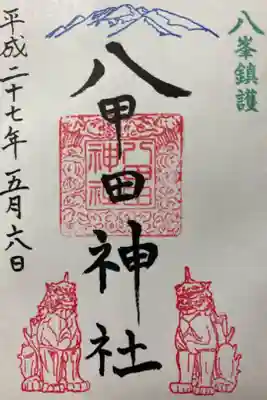 八峯鎮護
八甲田神社
平成二十七年五月六日
八甲田
神社